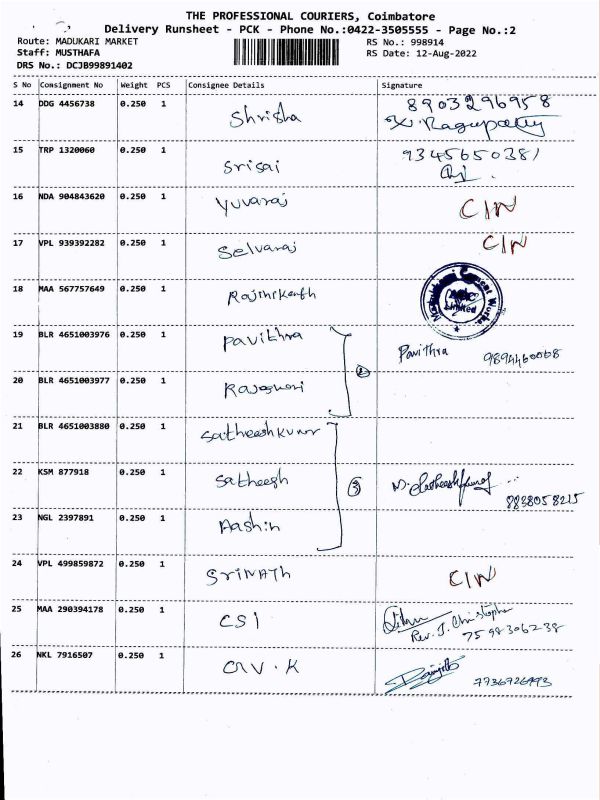 THE PROFESSIONAL COURIERS, Coimbatore
Delivery Runsheet - PCK - Phone No.:0422-3505555 - Page No.:2
Route: MADUKARI MARKET
Staff: MUSTHAFA
DRS No.: DCJB99891402
RS No.: 998914
RS Date: 12-Aug-2022
S No Consignment No Weight PCS Consignee Details Signature
14 DDG 4456738 0.250 1 Shrisha 8903296958
Ragupathy
15 TRP 1320060 0.250 1 Srisai 9345650381
16 NDA 904843620 0.250 1 Yuvaraj C/N
17 VPL 939392282 0.250 1 Selvaraj C/N
18 MAA 567757649 0.250 1 Rajinikanth
Limited
19 BLR 4651003976 0.250 1 Pavithra Pavithra 9894460068
20 BLR 4651003977 0.250 1
21 BLR 4651003880 0.250 1 Satheeshkumar
22 KSM 877918 0.250 1 Satheesh 3 8838058215
23 NGL 2397891 0.250 1 Aashin
24 VPL 499859872 0.250 1 SRINATH C/N
25 MAA 290394178 0.250 1 CSI
Rev. J. Christopher
7598306238
26 NKL 7916507 0.250 1 7736926493